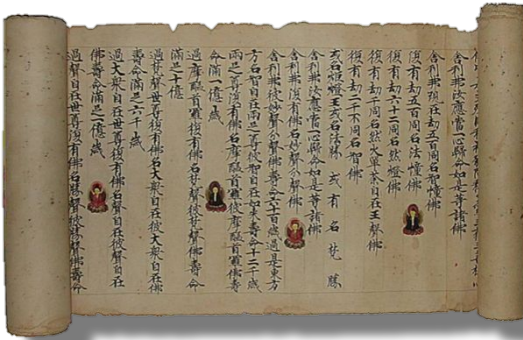 舍利弗汝應當一心歸命如是等諸佛
舍利弗現在劫五百同名智幢佛
復有劫五百同名法幢佛
復有劫六十二同名然燈佛
復有劫千同名然火單荼自在王聲佛
復有劫二千不同名智佛
或名炬燈王或名法勝 或有名梵勝
舍利弗汝應當一心歸命如是等諸佛
舍利弗復有佛名妙聲分聲佛
舍利弗彼妙聲分聲佛壽命六十百歲過是東方
方名智自在兩足尊彼智自在如來壽命十二千歲
兩足尊復有佛名摩醯首羅彼摩醯首羅佛壽
命滿一億歲
過摩醯首羅復有佛名梵聲彼梵聲佛壽命
滿足十億
過梵聲世尊復有佛名大衆自在彼大衆自在佛
壽命滿足六十歲
過大衆自在世尊復有佛名聲自在彼聲自在
佛壽命滿足一億歲
過聲自在世尊復有佛名勝聲彼勝聲佛壽命